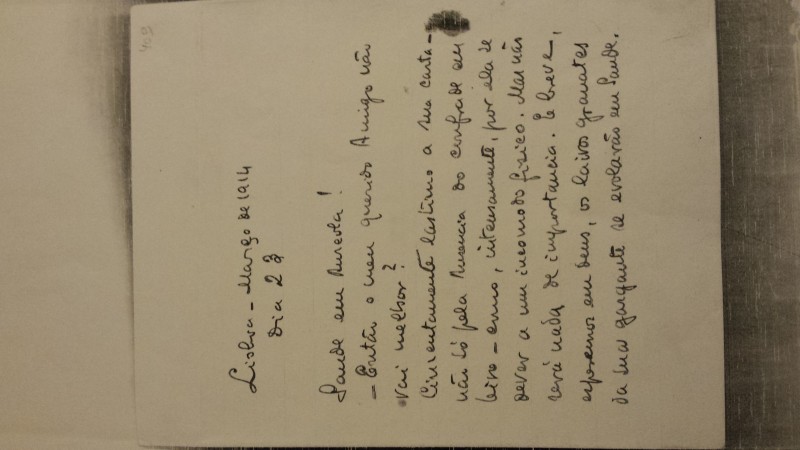 409
Lisboa – Março de 1914
Dia
Saude em Aureola!
– Então o meu querido Amigo não
vai melhor?
Cinzentamente lastimo a sua carta –
não só pela ausencia do confrade em
como, intensamente, por ela se
dever a um incomodo fisico. Mas não
será nada de importancia. E breve,
esperemos em Deus, os laivos granates
da sua garganta se evolarão em Saude.